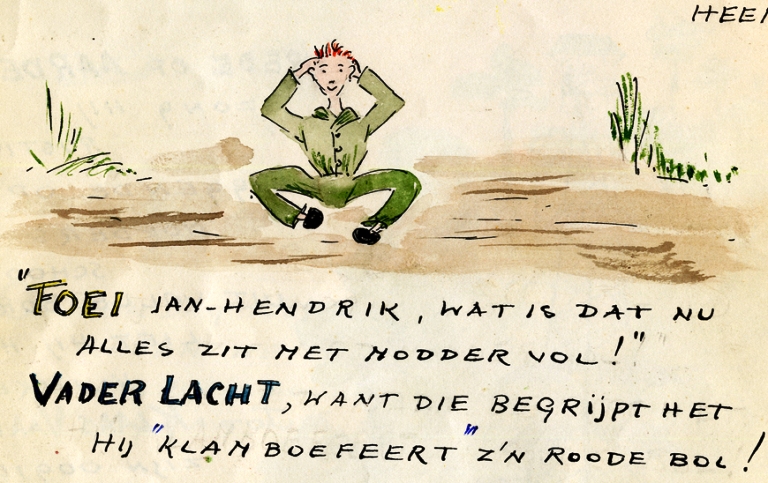 HEE
"FOEI JAN-HENDRIK, WAT IS DAT NU
ALLES ZIT MET MODDER VOL!"
VADER LACHT, WANT DIE BEGRIJPT HET
HIJ "KLAMBOEFEERT" Z'N ROODE BOL!